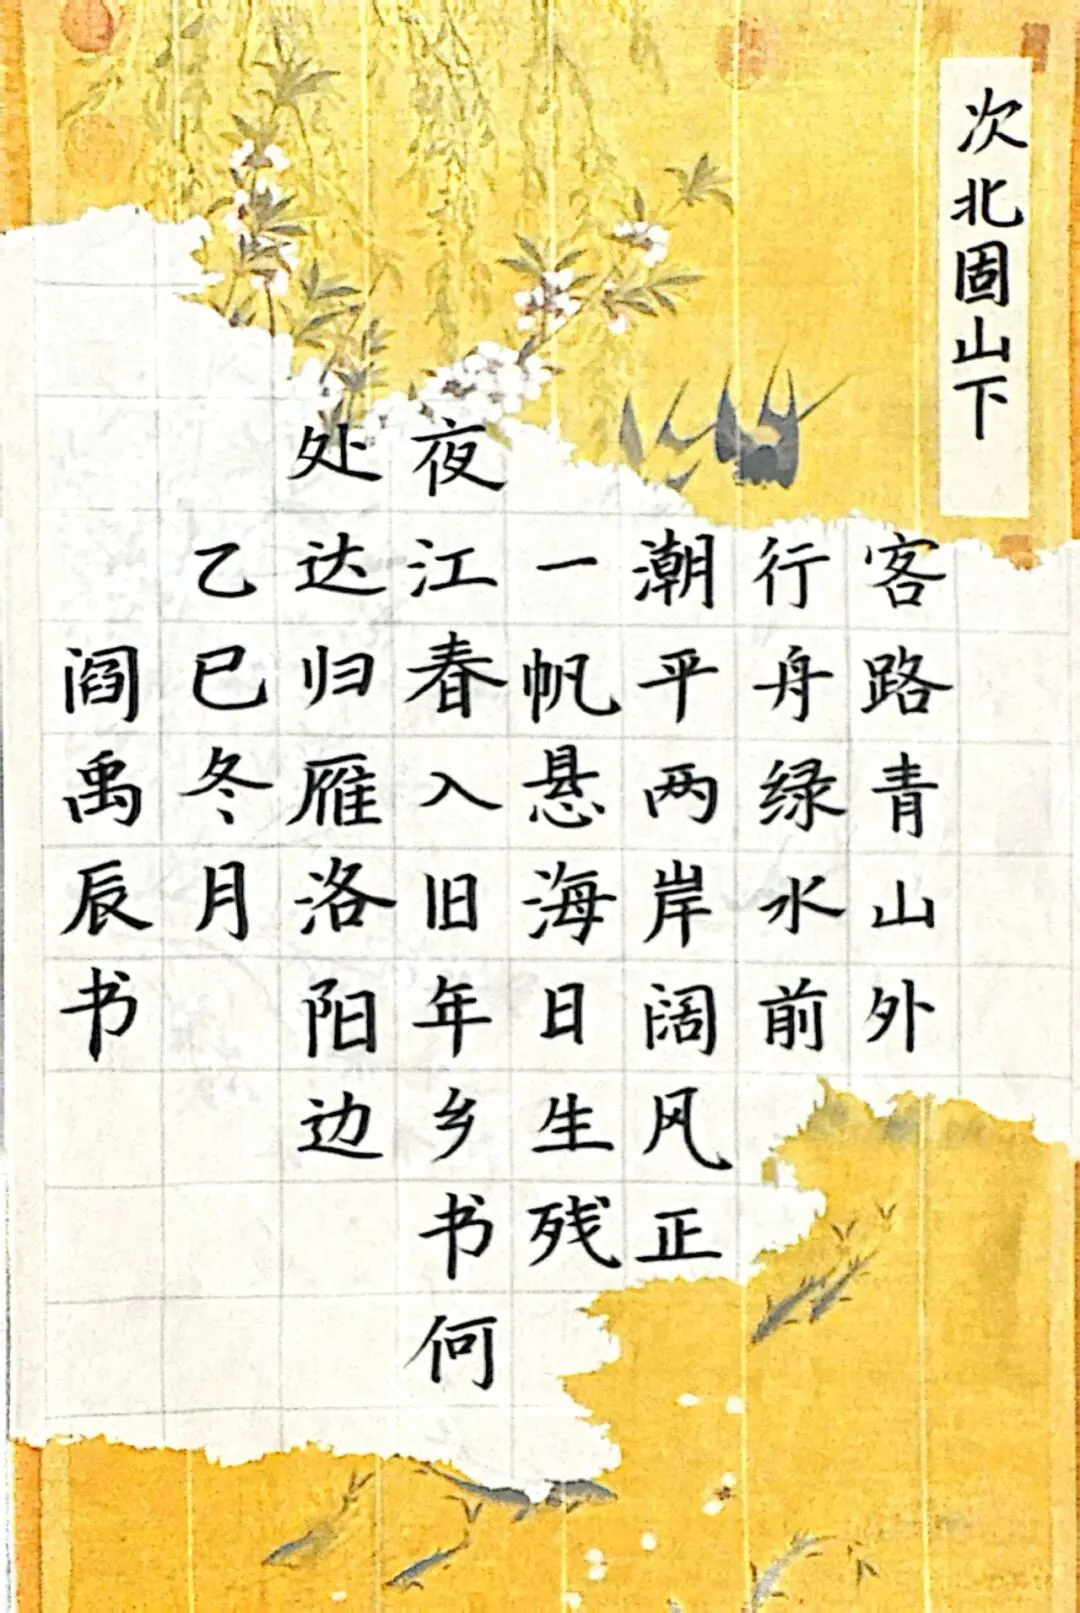 次北固山下
客路青山外
行舟绿水前
潮平两岸阔风正
一帆悬海日生残
夜江春入旧年乡书何
处达归雁洛阳边
乙巳冬月
阎禹辰书